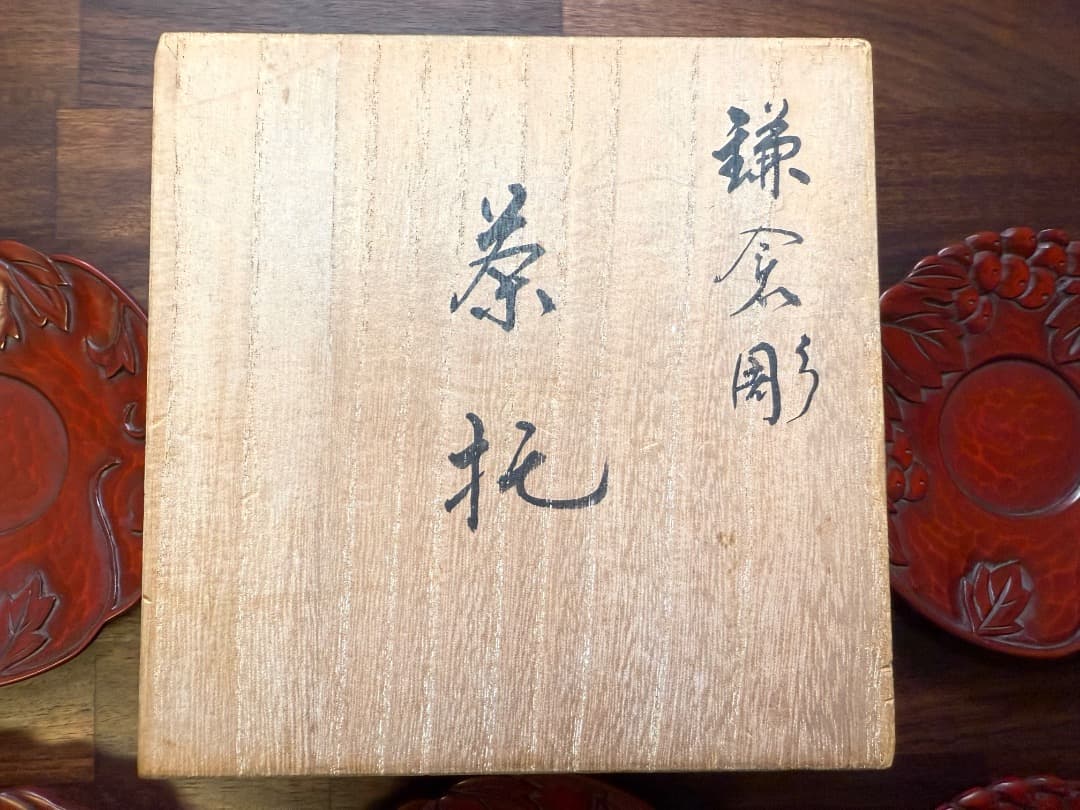 鎌倉彫
茶托